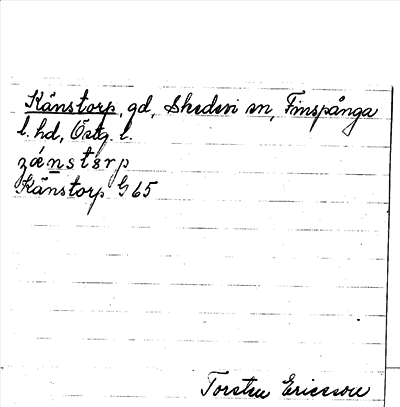 Känstorp, gd, Skedevi sn, Finspånga
l. hd, Östg. l.
ɟǽnstɔrp
Känstorp G 65
Torsten Ericsson